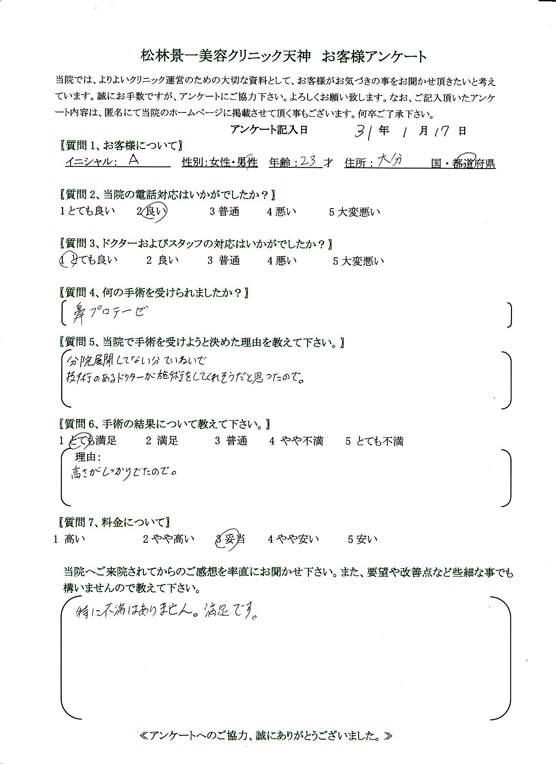 松林景一美容クリニック天神　お客様アンケート
当院では、よりよいクリニック運営のための大切な資料として、お客様がお気づきの事をお聞かせ頂きたいと考え
ています。誠にお手数ですが、アンケートにご協力下さい。よろしくお願い致します。なお、ご記入頂いたアンケ
ート内容は、匿名にて当院のホームページに掲載させて頂く事もございます。何卒ご了承下さい。
アンケート記入日　31年 1月17日
【質問1、お客様について】
イニシャル： A　性別：女性・男性　年齢：23才　住所：大分　国・都道府県
【質問2、当院の電話対応はいかがでしたか？】
1とても良い　2良い　3普通　4悪い　5大変悪い
【質問3、ドクターおよびスタッフの対応はいかがでしたか？】
1とても良い　2 良い　3 普通　4悪い　5大変悪い
【質問4、何の手術を受けられましたか？】
鼻プロテーゼ
【質問5、当院で手術を受けようと決めた理由を教えて下さい。】
分院展開してない分ていねいで
技術のあるドクターが施術をしてくれそうだと思ったので。
【質問6、手術の結果について教えて下さい。】
1とても満足　2 満足　3 普通　4 やや不満　5 とても不満
理由：
高さがしっかりでたので。
【質問7、料金について】
1 高い　2やや高い　3妥当　4やや安い　5安い
当院へご来院されてからのご感想を率直にお聞かせ下さい。また、要望や改善点など些細な事でも
構いませんので教えて下さい。
特に不満はありません。満足です。
≪アンケートへのご協力、誠にありがとうございました。≫